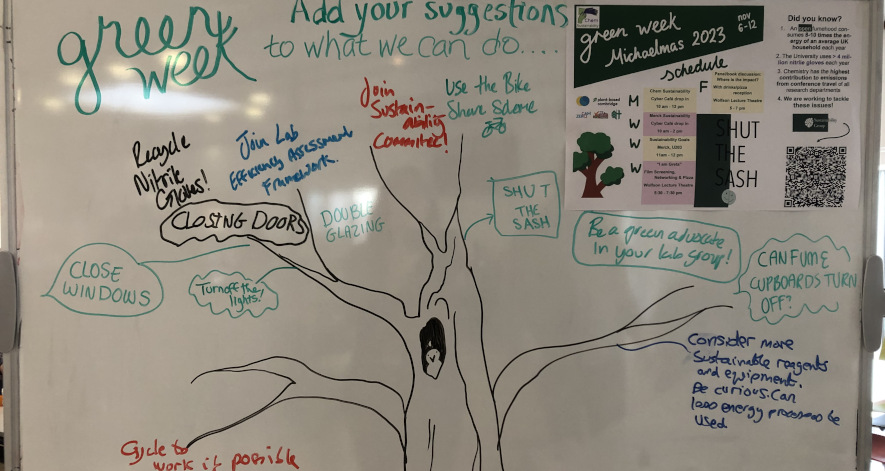 green
week
Add your suggestions
to what we can do....
Join
Sustain-
ability
Committee!
Use the Bike
Share Scheme
Recycle
Nitrile
Gloves!
Join Lab
Efficiency Assessment
Framework.
CLOSING DOORS
DOUBLE
GLAZING
SHUT
THE
SASH
Be a green advocate
in your lab group!
CLOSE
WINDOWS
Turn off the
lights!
CAN FUME
CUPBOARDS TURN
OFF?
Consider more
Sustainable reagents
and equipment.
Be curious. Can
less energy processes be
used
Cycle to
work if possible
green week
Michaelmas 2023
nov
6-12
schedule
M
Chem Sustainability
Cyber Café drop in
W
Merck Sustainability
Cyber Café drop in
10 am - 2 pm
W
Sustainability Goals
Merck, U202
11am - 12 pm
W
"I am Greta"
Film Screening,
Networking & Pizza
Wolfson Lecture Theatre
5:30 - 7:30 pm
F
Panel/book discussion
Where is the impact?
With drinks/pizza
reception
Wolfson Lecture Theatre
SHUT
THE
SASH
Did you know?
1. An open fumehood con-
sumes 8-10 times the en-
ergy of an average UK
household each year
2. The University uses > 4 mil-
lion nitrile gloves each year
3. Chemistry has the highest
contribution to emissions
from conference travel of all
research departments
4. We are working to tackle
these issues!
Sustainability
Group